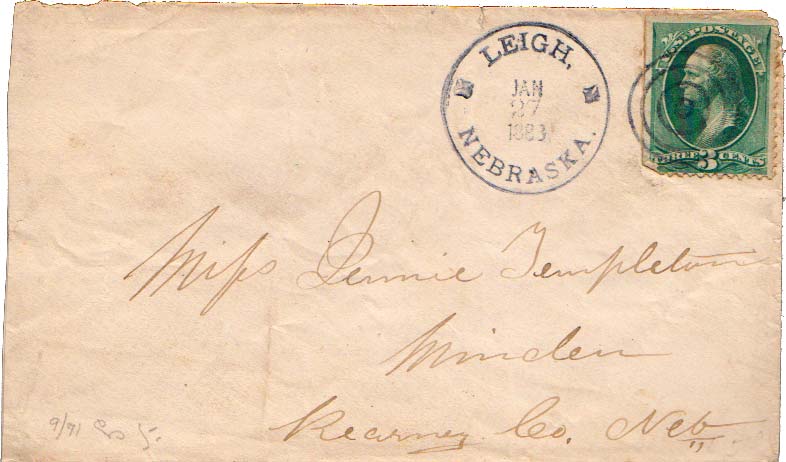 LEIGH,
JAN
27
1883
NEBRASKA.
U.S. POSTAGE
THREE 3 CENTS
Miss Jennie Templeton
Minden
Kearney Co. Neb
9/91